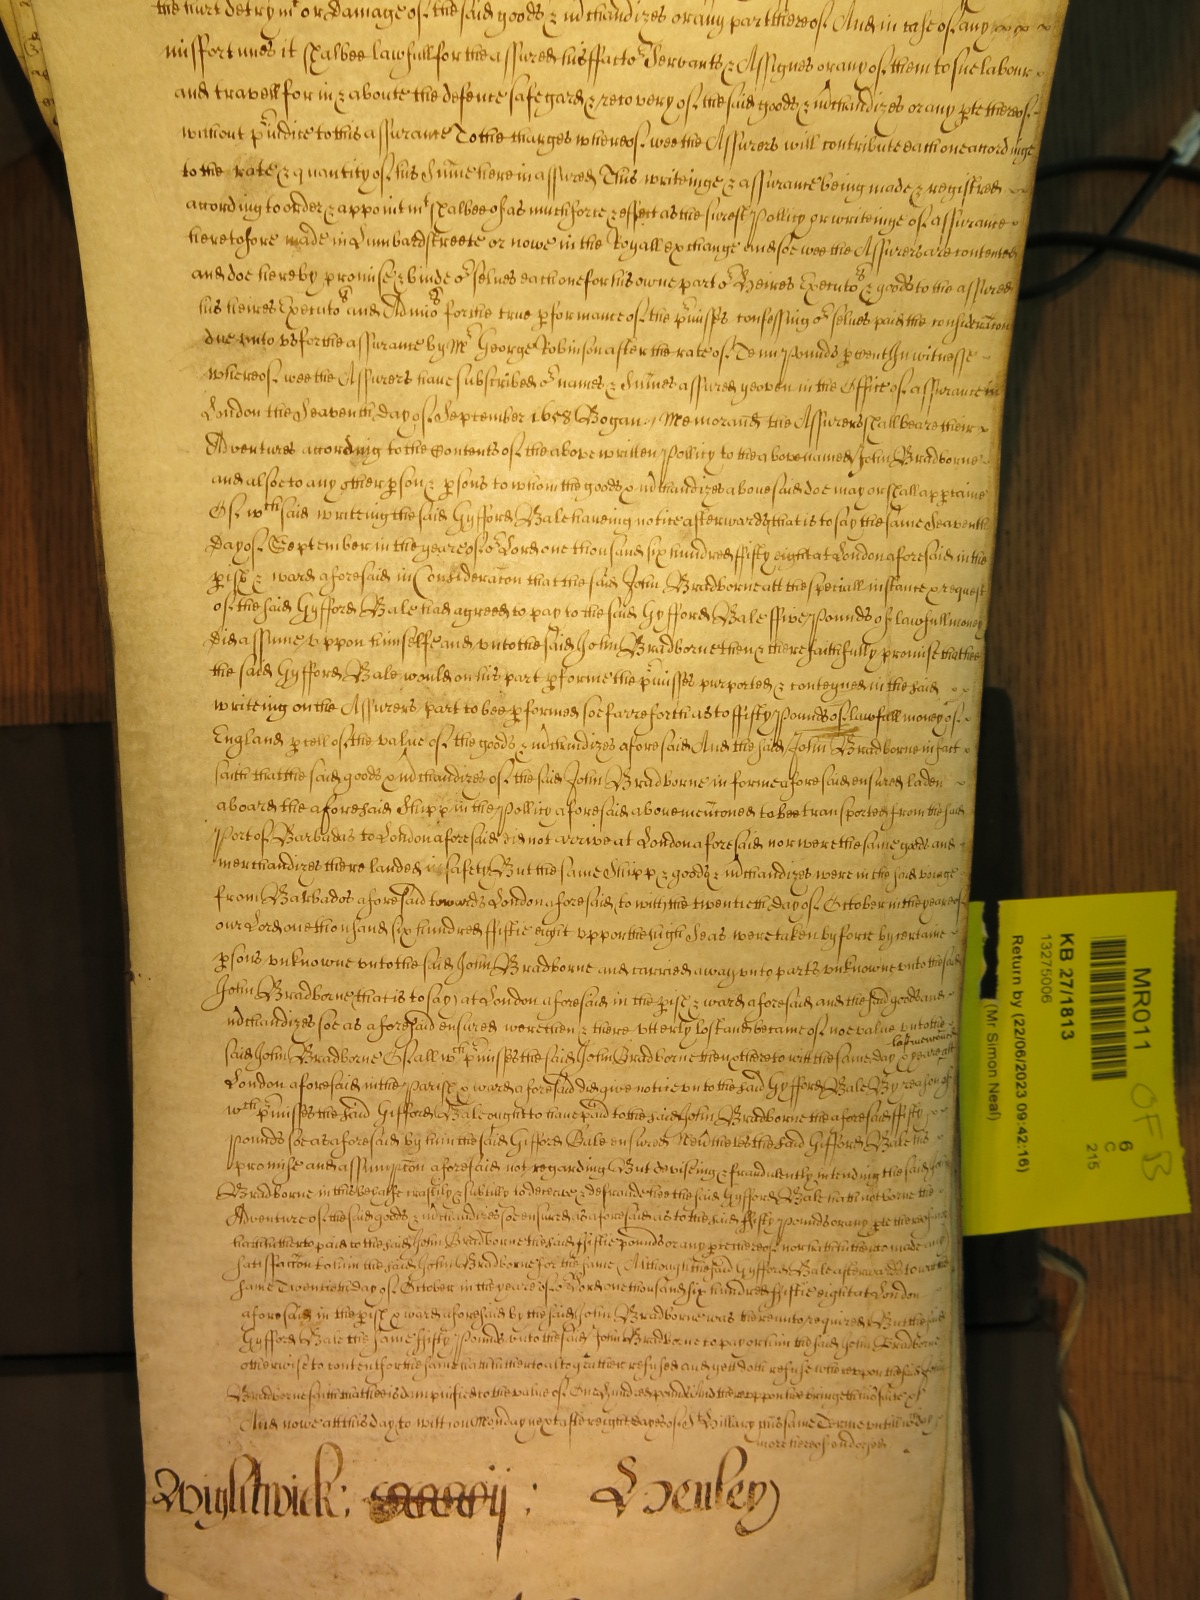 the hurt detrymt or Damage of the said goods & mchandizes or any part thereof And in case of any
misfortunes it shalbee lawfull for the assured his ffactors Servants & Assignes or any of them to sue labour
and travell for in & aboute the defence safegard & recovery of the said goods & mchandizes or any pte thereof
without piudice to this assurance To the charges whereof wee the Assurers will contribute each one accordinge
to the rate & quantity of his Summe herein assured This writeinge & assurance being made & registred
according to order & appointmt shalbee of as much force & effect as the surest Pollicy or writeinge of assurance
heretofore made in Lumbardstreete or nowe in the Royall exchange And soe wee the Assurers are contented
and doe hereby promise & binde or selves each one for his owne part or Heires Executors & goods to the assured
his heires Executors and Admors for the true pformance of the pmisses confessing or selves paid the consideracon
due unto us for the assurance by Mr George Robinson after the rate of Tenn Pounds p cent In witnesse
whereof wee the Assurers have subscribed or names & Summes assured yeoven in the Office of assurance in
London the Seaventh day of September 1658 Bogan Memorand the Assurers shall beare their
Adventures according to the Contents of the above written Pollicy to the abovenamed John Bradborne
and alsoe to any other pson & psons to whom the goods & mchandizes abovesaid doe may or shall apptaine
Of wch said writeing the said Gyfford Bale haveing notice afterwards that is to say the same Seaventh
Day of September in the yeare of or Lord one thousand six hundred ffifty eight at London aforesaid in the
pish & ward aforesaid in Consideracon that the said John Bradborne att the speciall instance & request
of the said Gyfford Bale had agreed to pay to the said Gyfford Bale ffive Pounds of lawfull money
Did assume uppon himselfe and unto the said John Bradborne then & there faithfully promise that hee
the said Gyfford Bale would on his part pforme the pmisses purported & conteyned in the said
writeing on the Assurers part to bee pformed soe farre forth as to ffifty Pounds of lawfull money of
England pcell of the value of the goods & mchandizes aforesaid And the said John Bradborne in fact
saith that the said goods & mchandizes of the said John Bradborne in forme aforesaid ensured laden
aboard the aforesaid Shipp in the Pollicy aforesaid above menconed to bee transported from the said
Port of Barbadas to London aforesaid did not arrive at London aforesaid nor were the same goods and
merchandizes there landed in safety But the same Shipp & goods & mchandizes were in the said voiage
from Barbados aforesaid towards London aforesaid to witt the twentieth day of October in the yeare of
our Lord one thousand six hundred ffiftie eight uppon the high Seas were taken by force by certaine
psons unknowne unto the said John Bradborne and carried away unto parts unknowne unto the said
John Bradborne that is to say at London aforesaid in the pish & ward aforesaid and the said goods and
mchandizes soe as aforesaid ensured were then & there utterly lost and became of noe value unto the
said John Bradborne Of all wch pmisses the said John Bradborne then & there to witt the same day & yeare last menconed att
London aforesaid in the Parish & ward aforesaid did give notice unto the said Gyfford Bale By reason of
wch pmisses the said Gifford Bale ought to have paid to the said John Bradborne the aforesaid ffifty
Pounds soe as aforesaid by him the said Gifford Bale ensured Nevtheles the said Gifford Bale his
promise and assumpcon aforesaid not regarding But deviseing & fraudulently intending the said John
Bradborne in this behalfe craftily & subtilly to deceave & defraude hee the said Gyfford Bale hath not borne the
Adventure of the said goods & mchandizes soe ensured as aforesaid as to the said ffifty Pounds or any pte thereof
hath hitherto paid to the said John Bradborne the said ffiftie pounds or any pte thereof nor hath hitherto made any
satisfaccon to him the said John Bradborne for the same Although the said Gyfford Bale afterwards to witt the
same Twentieth day of October in the yeare of or Lord one thousand six hundred ffiftie eight at London
aforesaid in the pish & ward aforesaid by the said John Bradborne was thereunto required But the said
Gyfford Bale the same ffifty Pounds unto the said John Bradborne to pay or him the said John Bradborne
otherwise to content for the same hath hitherto altogeather refused and yett doth refuse whereuppon the said John
Bradborne saith that hee is dampnified to the value of One hundred pounds And thereuppon hee bringeth his suite &c
And nowe att this day to witt on Monday next after eight dayes of St Hillary this same Terme untill wch day
more thereof on dorse
Wightwick: Henley
MR011
OF B
6
C
215
KB 27/1813
13275006
Return by (22/06/2023 09:42:16)
(Mr Simon Neal)